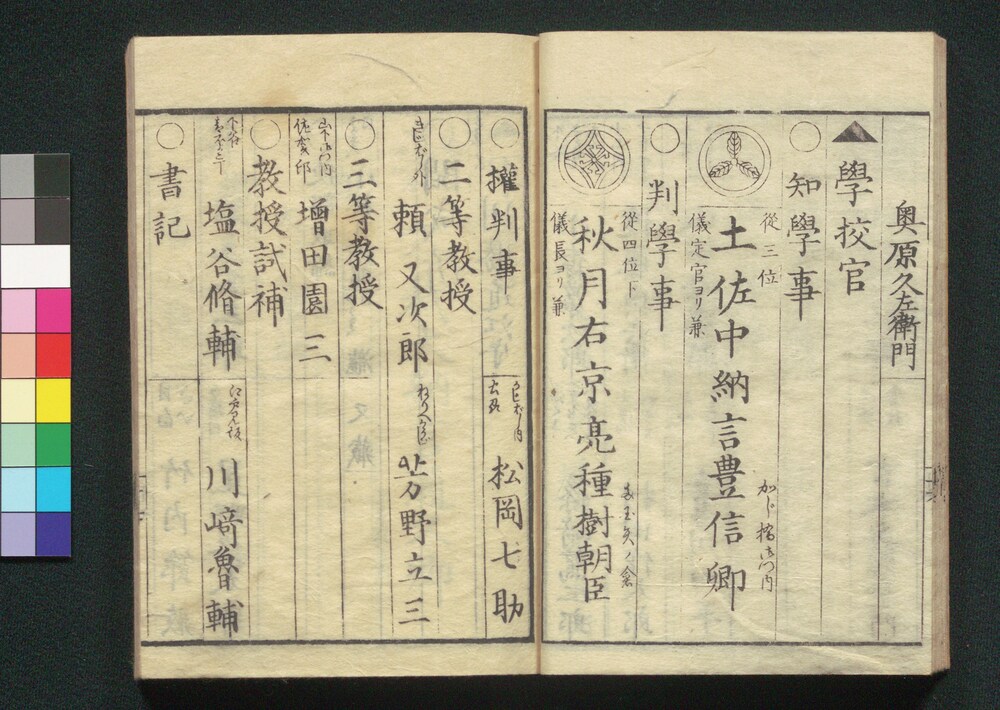 奥原久左衛門
學校官
知學事
從三位
土佐中納言豊信卿
儀定官ヨリ兼
判學事
從四位下
秋月右京亮種樹朝臣
儀長ヨリ兼
權判事
松岡七助
二等教授
頼又次郎
芳野立三
三等教授
増田園三
教授試補
塩谷脩輔
川﨑魯輔
書記